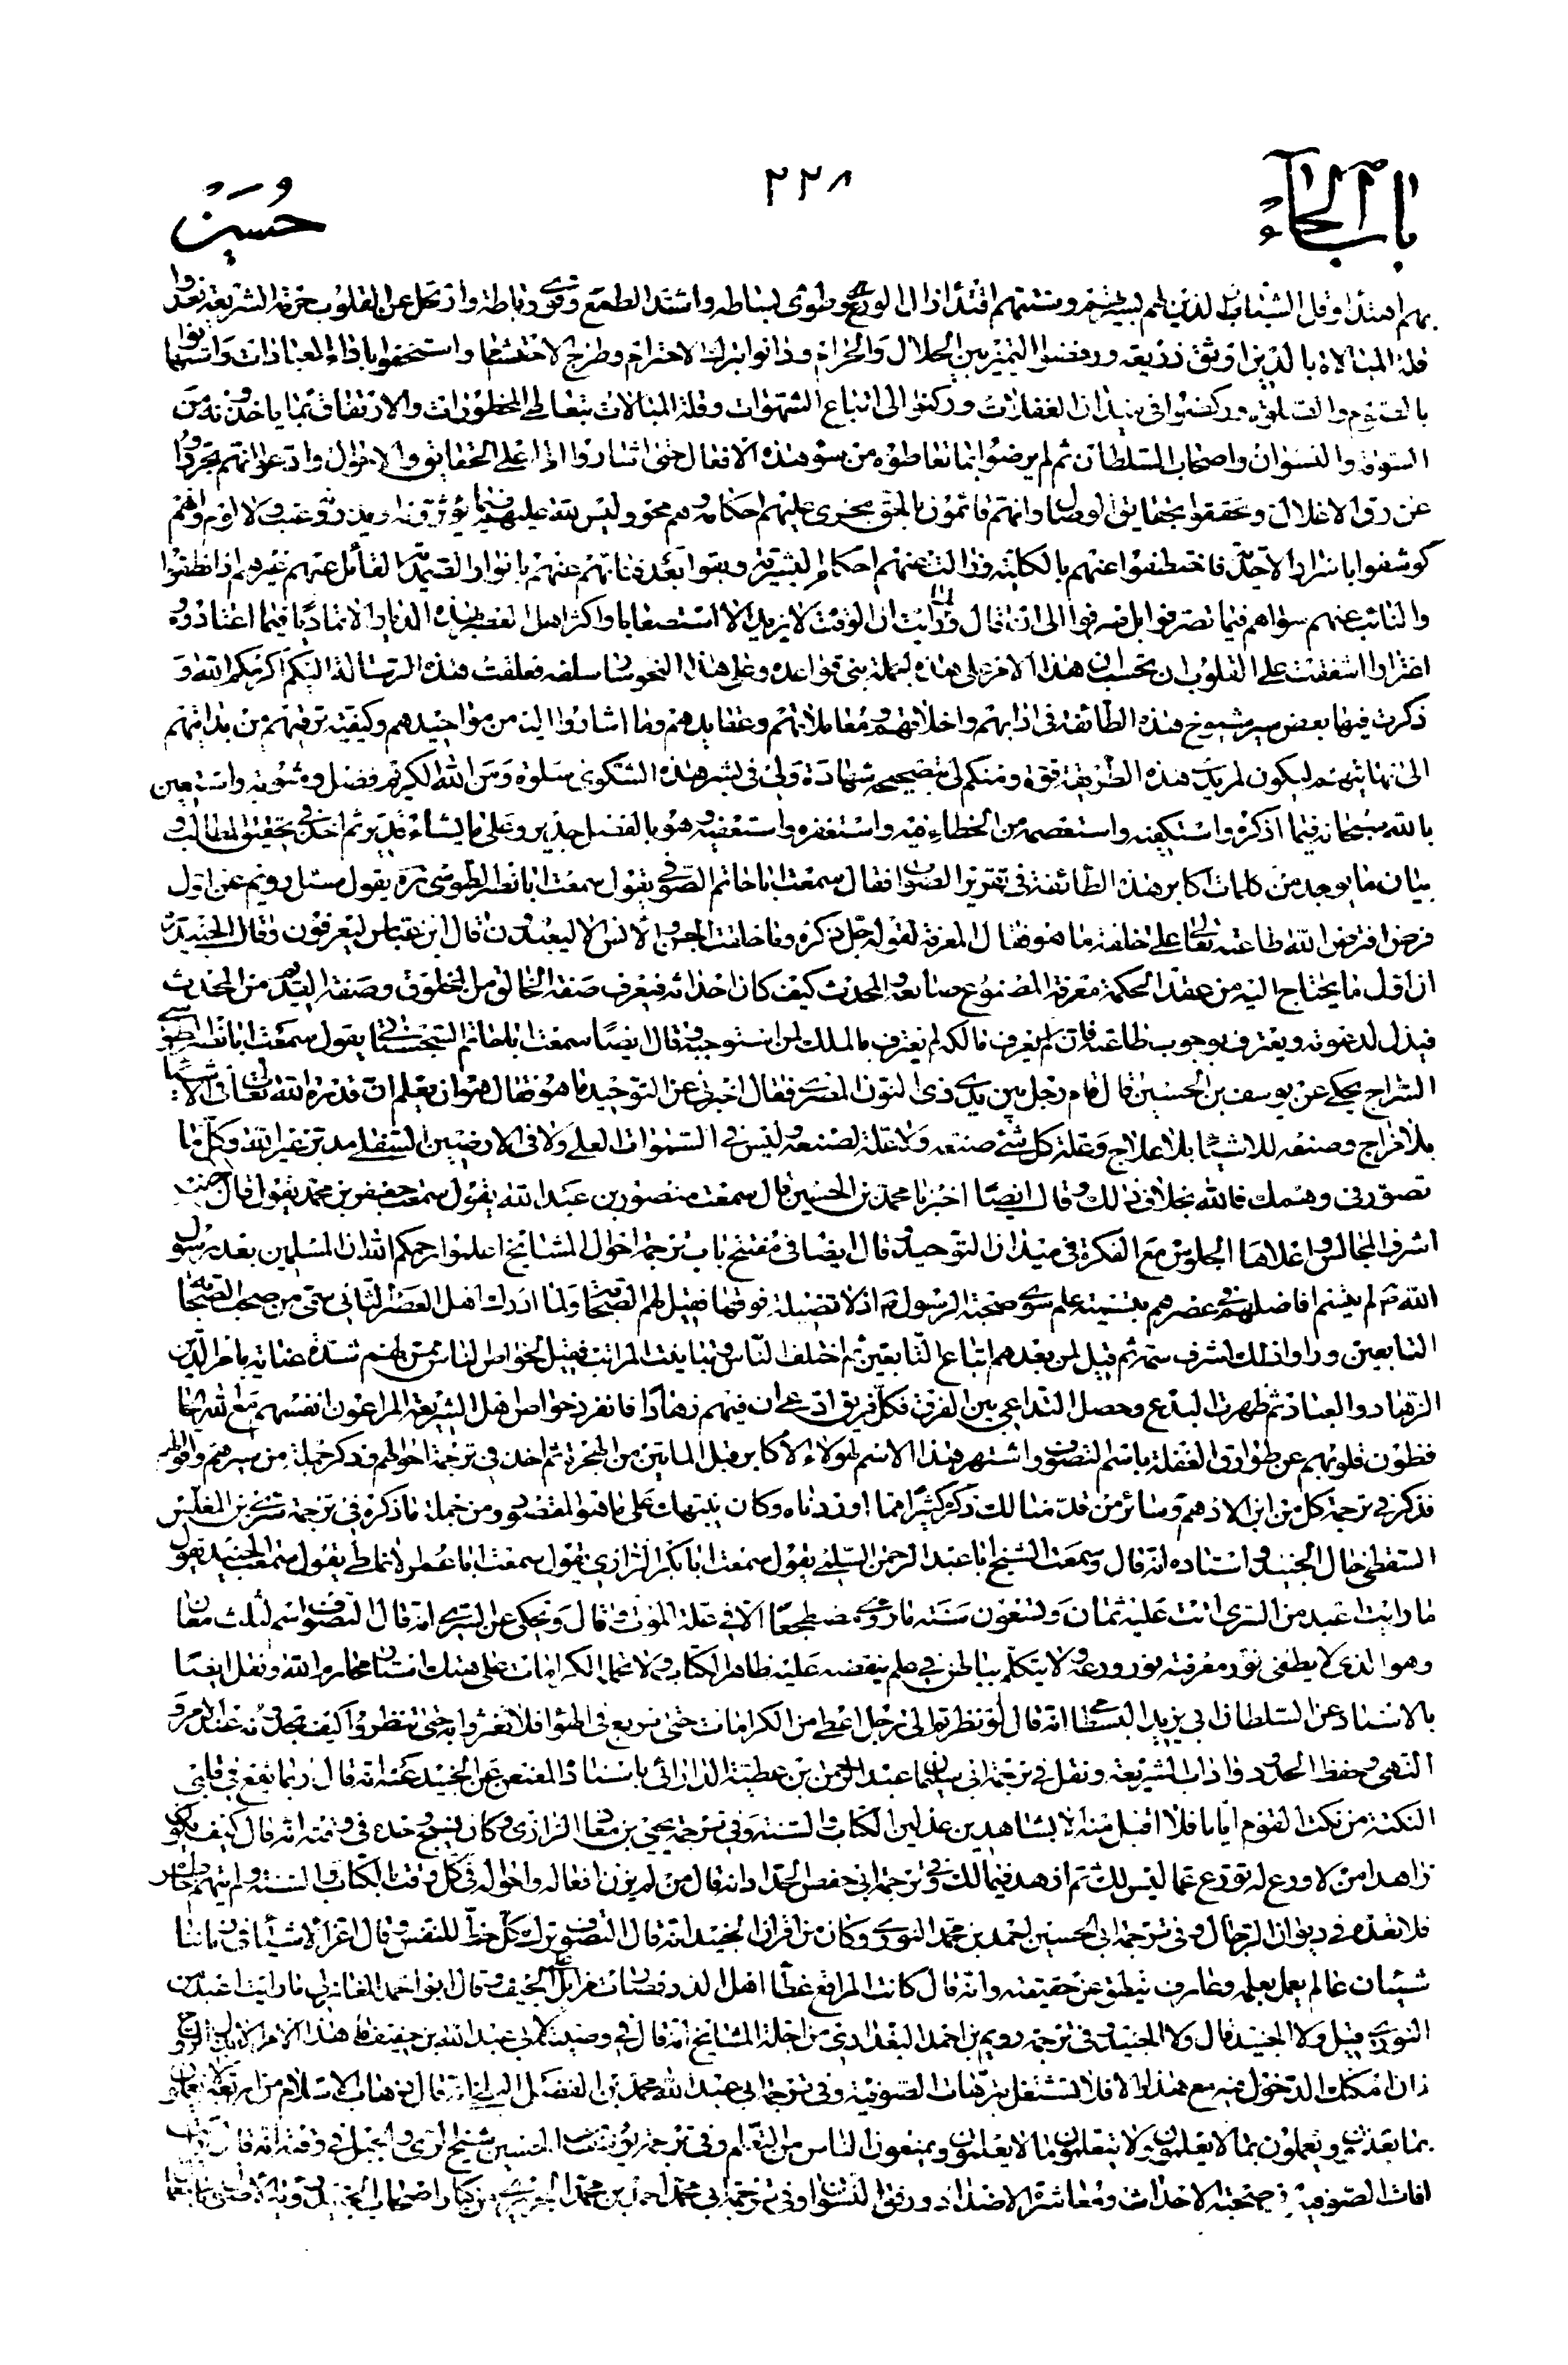 باب الحاء
٢٢٨
حسين
بهم اهتداء وقل الشباب الذين لهم بسيرتهم وسنتهم اقتداء زال الورع وطوى بساطه واشتد الطمع وقوى رباطه وارتحل عن القلوب حرمة الشريعة فعدوا
قلة المبالاة بالدين اوثق ذريعة ورفضوا التميز بين الحلال والحرام ودانوا بترك الاحترام وطرح الاحتشام واستخفوا باداء العبادات واستهانوا
بالصوم والصلوة وركضوا في ميدان الغفلات وركنوا الى اتباع الشهوات وقلة المبالات بتعاطي المحظورات والارتفاق بما ياخذونه من
السوقة والنسوان واصحاب السلطان ثم لم يرضوا بما تعاطوه من سوء هذه الافعال حتى اشاروا الى اعلى الحقايق والاحوال وادعوا انهم تحرروا
عن رق الاغلال وتحققوا بحقايق الوصال وانهم قائمون بالحق تجرى عليهم احكامه وهم محو وليس لله عليهم فيما يؤثرونه او يذرونه عتب ولا لوم وانهم
كوشفوا باسرار الاحدية فاختطفوا عنهم بالكلية وزالت عنهم احكام البشرية وبقوا بعد فنائهم عنهم بانوار الصمدية القائل عنهم غيرهم اذا نطقوا
والنائب عنهم سواهم فيما تصرفوا بل صرفوا الى ان قال ولما رايت ان الوقت لا يزيد الا استصعابا واكثر اهل العصر بهذه الديار الا تماديا فيما اعتادوه
اغترارا اشفقت على القلوب ان تحسب ان هذا الامر على هذه الجملة بنى قواعده وعلى هذا النحو سار سلفه فعلقت هذه الرسالة اليكم اكرمكم الله و
ذكرت فيها بعض سير شيوخ هذه الطائفة في ادابهم واخلاقهم ومعاملاتهم وعقايدهم وما اشاروا اليه من مواجيدهم وكيفية ترقيهم من بدايتهم
الى نهايتهم ليكون لمريدي هذه الطريقة قوة ومنكم لي بتصحيحها شهادة ولي في نشر هذه الشكوى سلوة ومن الله الكريم فضل ومثوبة واستعين
بالله سبحانه فيما اذكره واستكفيه واستعصمه من الخطاء فيه واستغفره واستعفيه وهو بالفضل جدير وعلى ما يشاء قدير ثم اخذ في تحقيق المطالب و
بيان ما يوجد من كلمات اكابر هذه الطائفة في تقرير الصواب فقال سمعت ابا حاتم الصوفي يقول سمعت ابا نصر الطوسي ره يقول سئل رويم عن اول
فرض افترض الله طاعته تعالى على خلقه ما هو فقال المعرفة لقوله جل ذكره وما خلقت الجن والانس الا ليعبدون قال ابن عباس ليعرفون وقال الجنيد ره
ان اول ما يحتاج اليه من عقد الحكمة معرفة المصنوع صانعه والمحدث كيف كان احداثه فيعرف صفة الخالق من المخلوق وصفة القديم من المحدث
فيذل لدعوته ويعترف بوجوب طاعته فان لم يعرف مالكه لم يعترف بالملك لمن استوجبه وقال ايضا سمعت ابا حاتم السجستاني يقول سمعت ابا نصر الطوسي
السراج يحكى عن يوسف بن الحسين قال قام رجل بين يدي ذي النون المصري فقال اخبرني عن التوحيد ما هو فقال هو ان يعلم ان قدرة الله تعالى في الاشياء
بلا مزاج وصنعه للاشياء بلا علاج وعلة كل شئ صنعه ولا علة لصنعه وليس في السموات العلى ولا في الارضين السفلى مدبر غير الله وكل ما
تصور في وهمك فالله بخلاف ذلك وقال ايضا اخبرنا محمد بن الحسين قال سمعت منصور بن عبد الله يقول سمعت جعفر بن محمد يقول قال جنيد
اشرف المجالس واعلاها الجلوس مع الفكرة في ميدان التوحيد وقال ايضا في مفتتح باب ترجمة احوال المشايخ اعلموا رحمكم الله ان المسلمين بعد رسول
الله ص لم يتسم افاضلهم في عصرهم بتسمية علم سوى صحبة الرسول ص اذ لا فضيلة فوقها فقيل لهم الصحابة ولما ادرك اهل العصر الثاني سمى من صحب الصحابة
التابعين وراوا ذلك اشرف سمة ثم قيل لمن بعدهم اتباع التابعين ثم اختلف الناس وتباينت المراتب فقيل لخواص الناس ممن لهم شدة عناية بامر الدين
الزهاد والعباد ثم ظهرت البدع وحصل التداعي بين الفرق فكل فريق ادعى ان فيهم زهادا فانفرد خواص اهل الشريعة المراعون انفسهم مع الله الحا
فظون قلوبهم عن طوارق الغفلة باسم التصوف واشتهر هذا الاسم لهؤلاء الاكابر قبل المأتين من الهجرة ثم اخذ في ترجمة احوالهم وذكر جملة من سيرهم واقوالهم
فذكر في ترجمة كل من ابن الادهم وسائر من قدمنا لك ذكره كثيرا مما اوردناه وكان نبتهات على ما هو المقصود ومن جملة ما ذكره في ترجمة سري بن المغلس
السقطي خال الجنيد واستاده انه قال وسمعت الشيخ ابا عبد الرحمن السلمي يقول سمعت ابا بكر الرازي يقول سمعت ابا عمر الانماطي يقول سمعت الجنيد يقول
ما رايت اعبد من السرى اتت عليه ثمان وتسعون سنة ما روى مضطجعا الا في علة الموت قال ويحكى عن السري انه قال التصوف اسم لثلث معان
وهو الذي لا يطفى نور معرفته نور ورعه ولا يتكلم بباطن في علم ينقضه عليه ظاهر الكتاب ولا تحمله الكرامات على هتك استار محارم الله ونقل ايضا
بالاسناد عن السلطان ابي يزيد البسطامي انه قال لو نظرتم الى رجل اعطى من الكرامات حتى يربع في الهواء فلا تغتروا به حتى تنظروا كيف تجدونه عند الامر و
النهي وحفظ الحدود واداب الشريعة ونقل في ترجمة ابي سليمان عبد الرحمن بن عطية الداراني باسناد المعنعن عن الجنيد عنه انه قال ربما يقع في قلبي
النكتة من نكت القوم اياما فلا اقبل منه الا بشاهدين عدلين الكتاب والسنة وفي ترجمة يحيى بن معاذ الرازي وكان نسيج وحده في وقته انه قال كيف يكون
زاهدا من لا ورع له تورع عما ليس لك ثم ازهد فيما لك وفي ترجمة ابي حفص الحداد انه قال من لم يزن افعاله واحواله في كل وقت بالكتاب والسنة ولم يتهم خاطره
فلا تعده في ديوان الرجال وفي ترجمة ابي الحسين احمد بن محمد النوري وكان من اقران الجنيد انه قال التصوف ترك كل حظ للنفس وقال اعز الاشياء في زماننا
شيئان عالم يعمل بعلمه وعارف ينطق عن حقيقته وانه قال كانت المراقع غطاء اهل الدر فصارت مزابل على الجيف وقال ابو احمد المغازلي ما رايت اعبد من
النوري قيل ولا الجنيد قال ولا الجنيد وفي ترجمة رويم بن احمد البغدادي من اجلة المشايخ انه قال في وصيته لابي عبد الله بن خفيف ما هذا الامر الا ببذل الروح
فان امكنك الدخول فيه مع هذا والا فلا تشتغل بترهات الصوفية وفي ترجمة ابي عبد الله محمد بن الفضل البلخي انه قال ذهاب الاسلام من اربعة لا يعملون
بما يعلمون ويعملون بما لا يعلمون ولا يتعلمون ما لا يعلمون ويمنعون الناس من التعلم وفي ترجمة يوسف بن الحسين شيخ الري والجبل في وقته انه قال رايت
افات الصوفية في صحبة الاحداث ومعاشرة الاضداد ورفق النسوان وفي ترجمة ابي محمد احمد بن محمد الجريري من كبار اصحاب الجنيد